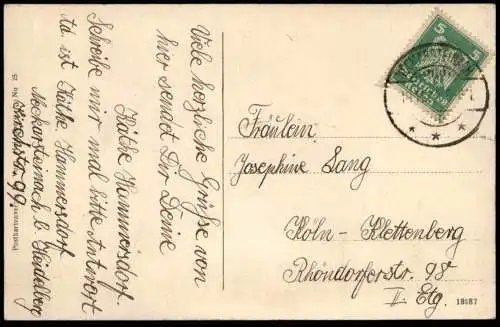 Viele herzliche Grüße von
hier sendet Dir Deine
Käthe Hammersdorf.
Schreibe mir mal bitte Antwort
da ist Käthe Hammersdorf
Neckarsteinach b. Heidelberg
Kirchstr. 99.
Fräulein
Josephine Lang
Köln - Klettenberg
Rhöndorferstr. 98
II. Etg.
5 5
Deutsches
Reich
No 25
18687